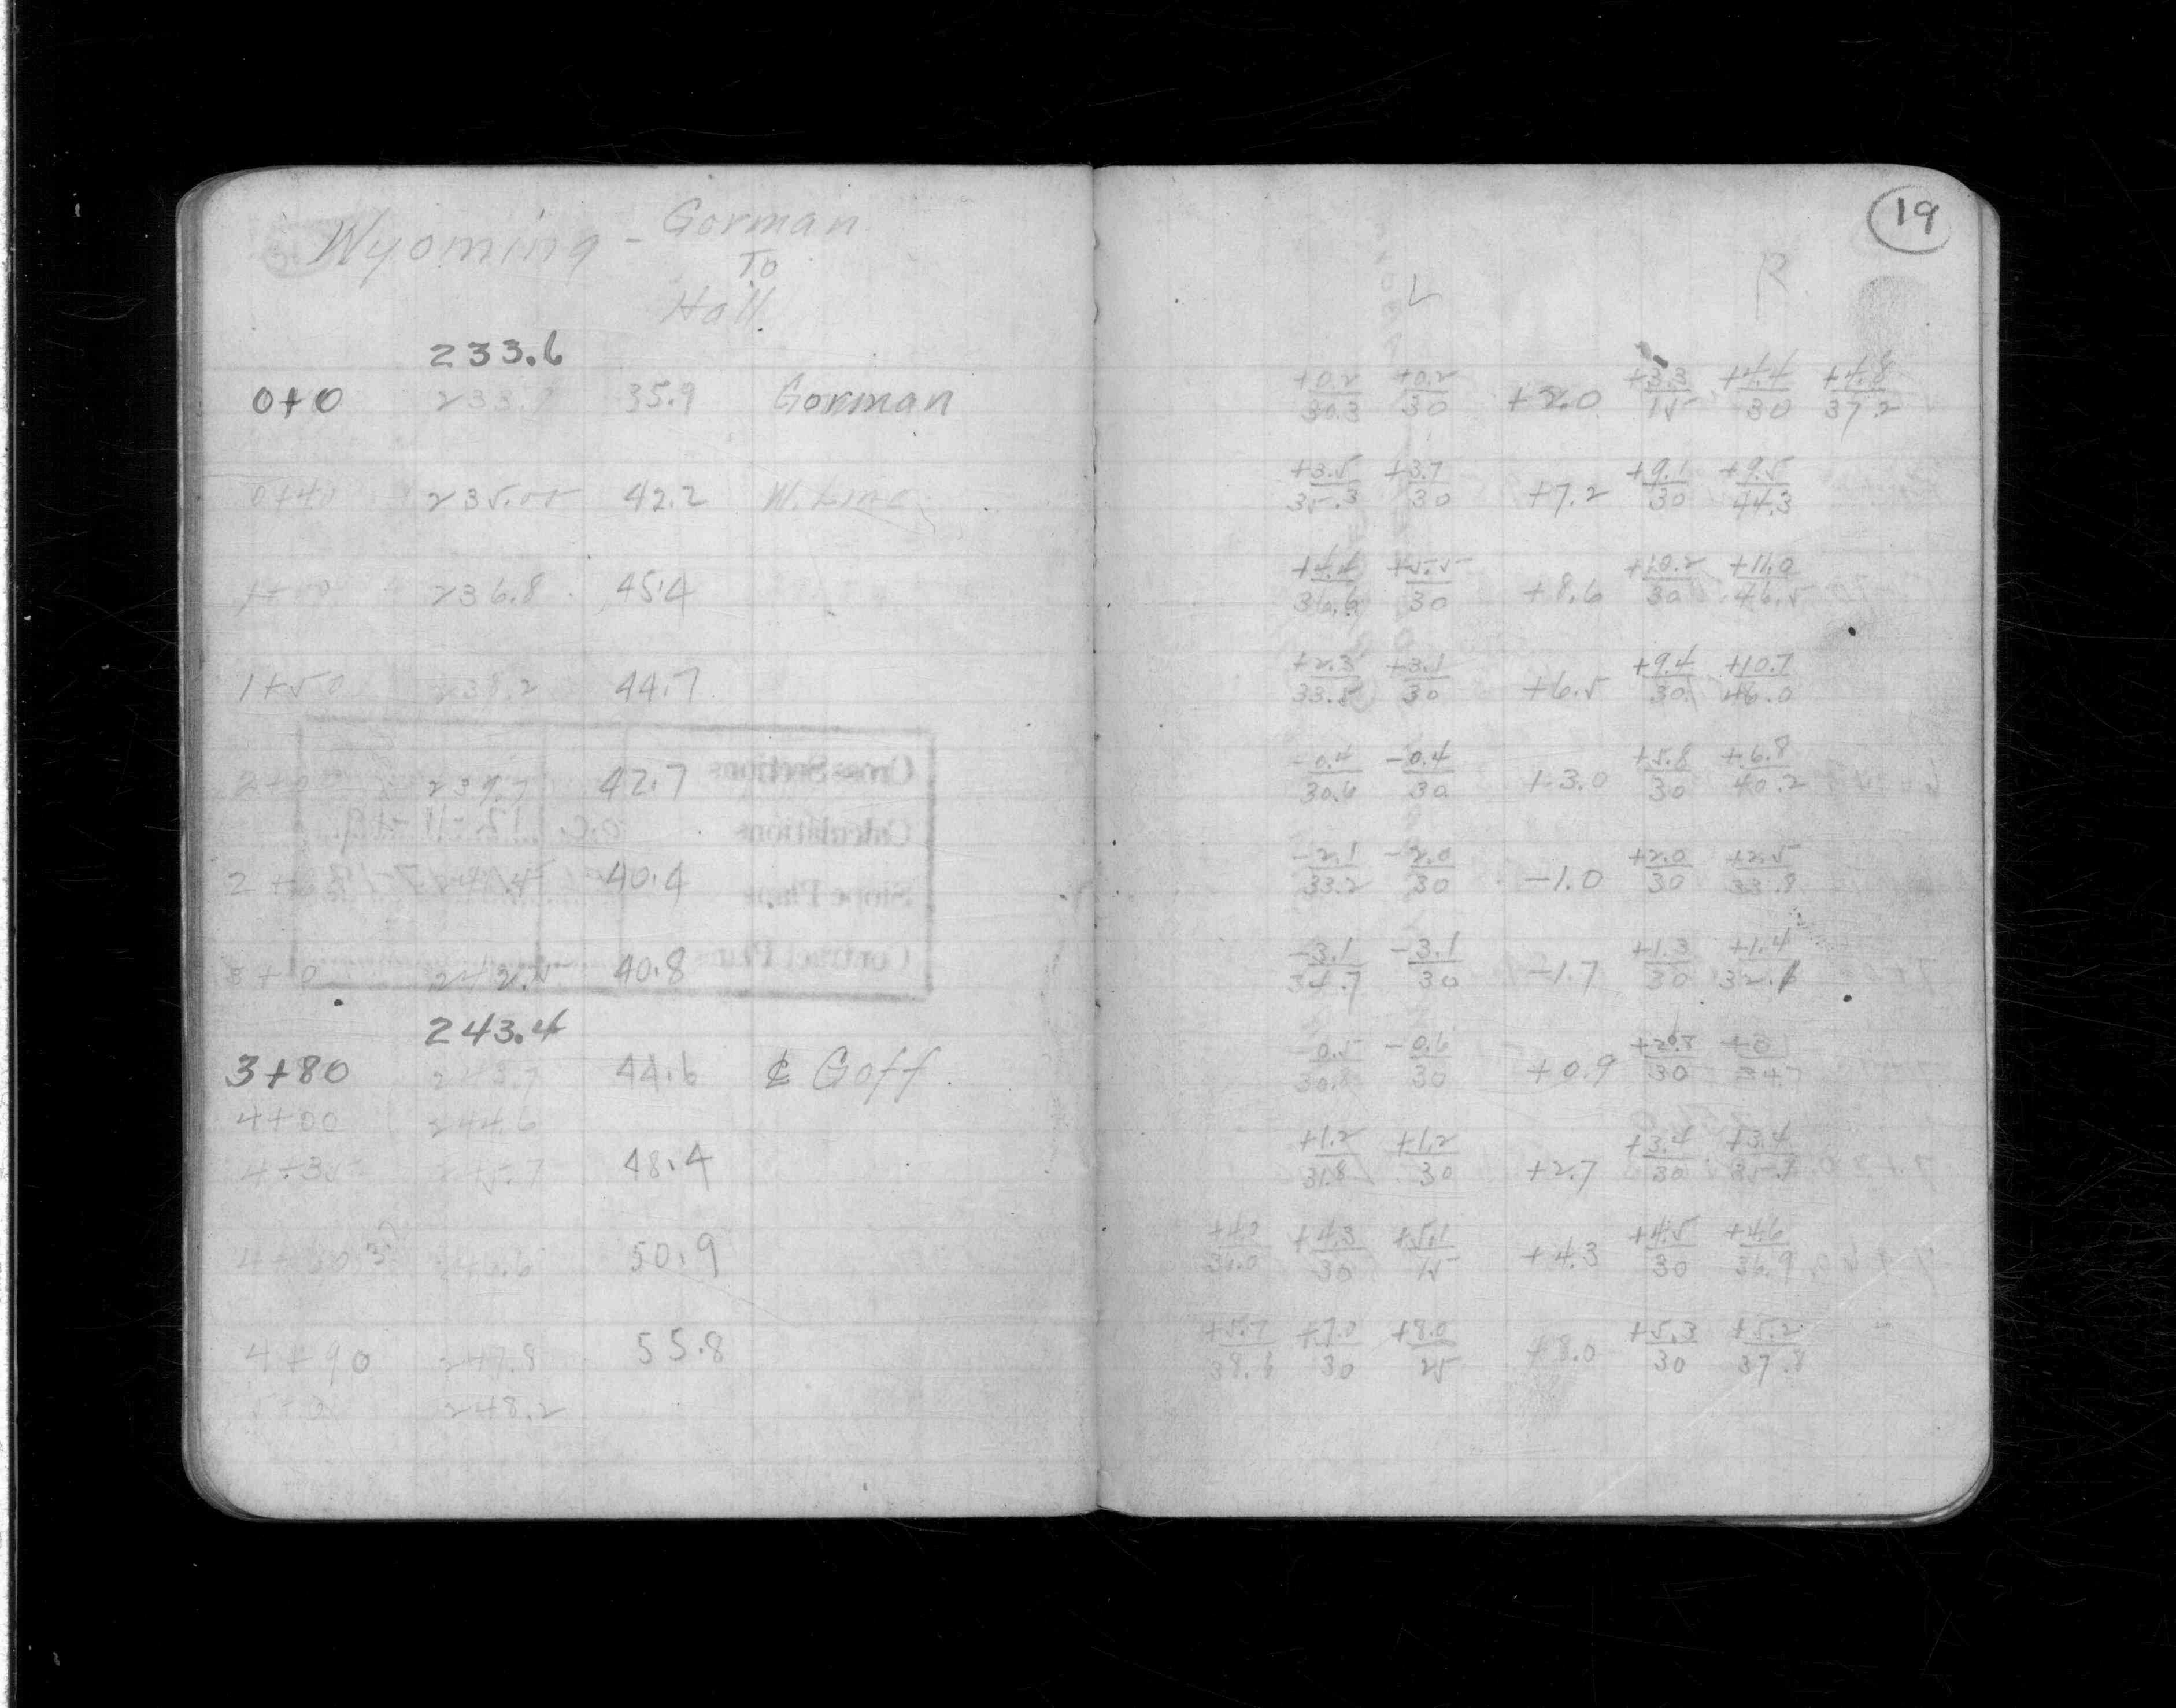 Wyoming - Gorman
To
Hall
233.6
0+0 233.7 35.9 Gorman
0+40 235.00 42.2 W. Line
1+00 236.8 45.4
1+50 238.2 44.7
2+00 239.7 42.7
2+ 40.4
3+0 242. 40.8
243.4
3+80 243.7 44.6 ⅊ Goff
4+00 244.6
4+35 245.7 48.4
50.9
4+90 247.8 55.8
248.2
19
L R
+0.2/30.3 +0.2/30 +2.0 +3.3/15 +4.4/30 +4.8/37.2
+3.5/35.3 +3.7/30 +7.2 +9.1/30 +9.5/44.3
+4.4/36.6 +5.5/30 +8.6 +10.2/30 +11.0/46.5
+2.3/33.5 +3.1/30 +6.5 +9.4/30 +10.7/46.0
-0.4/30.6 -0.4/30 +3.0 +5.8/30 +6.8/40.2
-2.1/33.2 -2.0/30 -1.0 +2.0/30 +2.5/33.8
-3.1/34.7 -3.1/30 -1.7 +1.3/30 +1.4/32.1
-0.5/30.8 -0.6/30 +0.9 +2.8/30 /34.7
+1.2/31.8 +1.2/30 +2.7 +3.4/30 +3.4/35.1
+4.0/36.0 +4.3/30 +5.1/15 +4.3 +4.5/30 +4.6/36.9
+5.7/38.6 +7.0/30 +8.0/25 +8.0 +5.3/30 +5.2/37.8